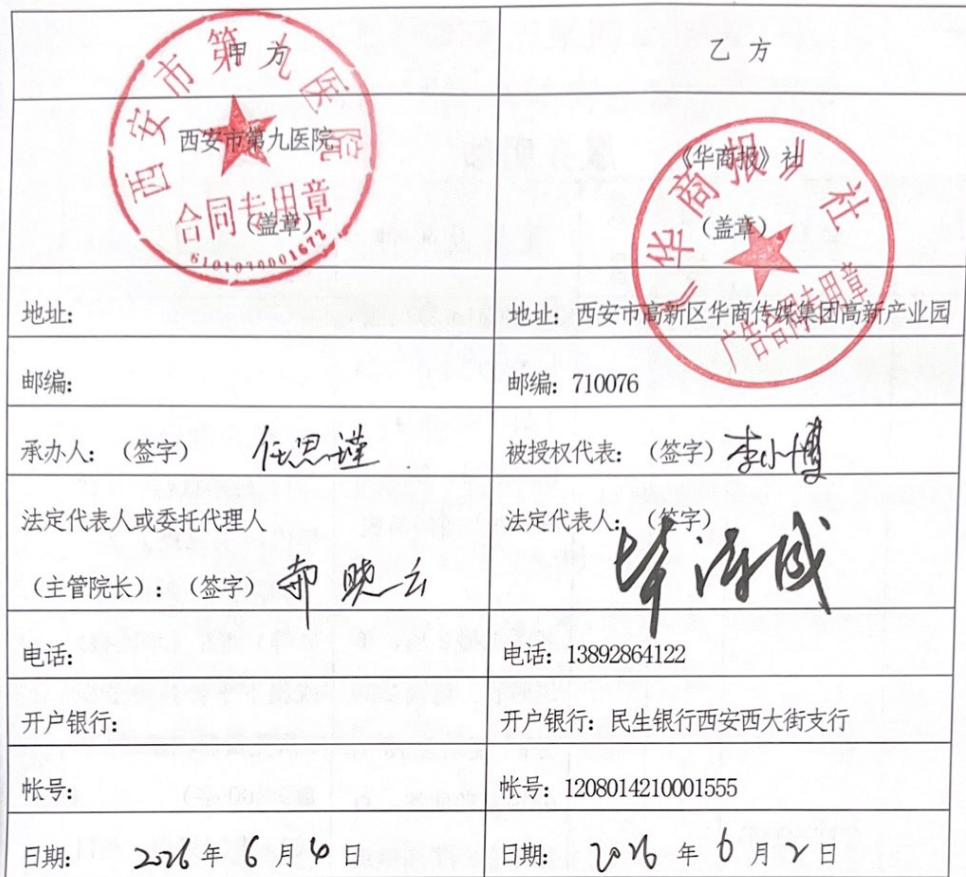 甲 方
乙 方
西安市第九医院
（盖章）
西安市第九医院
合同专用章
《华商报》社
（盖章）
《华商报》社
广告合同专用章
地址：
地址：西安市高新区华商传媒集团高新产业园
邮编：
邮编：710076
承办人：（签字） 任思谨
被授权代表：（签字） 李小博
法定代表人或委托代理人
（主管院长）：（签字） 郝晓云
法定代表人：（签字）
电话：
电话：13892864122
开户银行：
开户银行：民生银行西安西大街支行
帐号：
帐号：1208014210001555
日期： 2026 年 6 月 4 日
日期： 2026 年 6 月 2 日